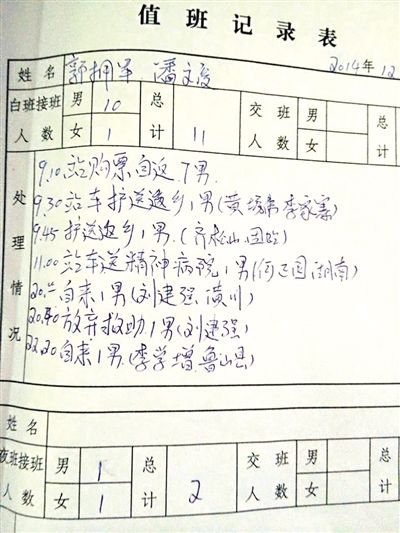 值班记录表
2014年12
姓名 郭拥军 潘文俊
白班接班人数 男 10 女 1 总计 11 交班人数 男 女 总计
处理情况
9.10站购票自返7男
9.30站车护送返乡1男(黄 李家寨)
9.45护送返乡1男(齐松山 固始)
11.00站车送精神病院1男(何正国湖南)
自来1男(刘建强 潢川)
20.40放弃救助1男(刘建强)
22.20自来1男(李学增 鲁山县)
姓名
夜班接班人数 男 1 女 1 总计 2 交班人数 男 女 总计